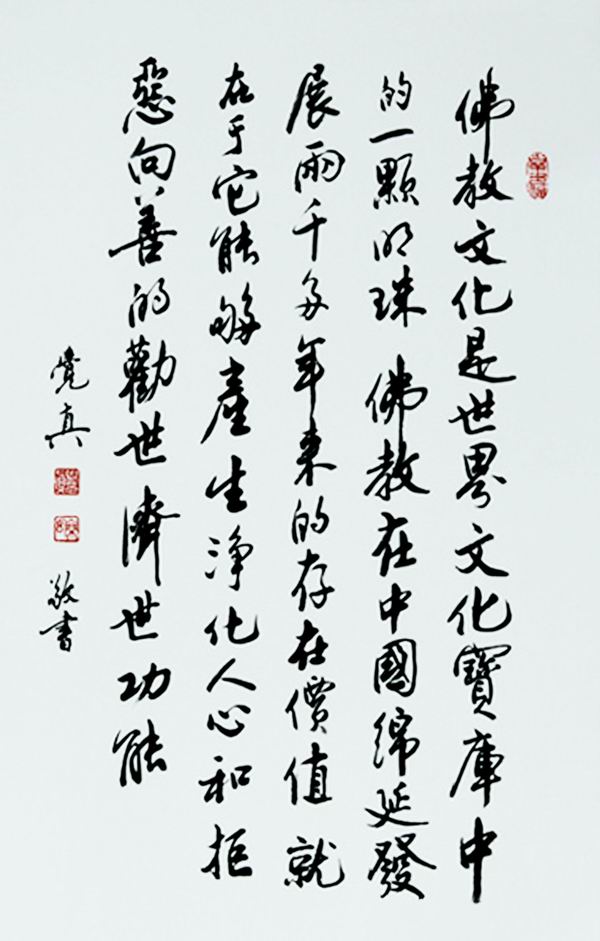 佛教文化是世界文化寶庫中
的一顆明珠佛教在中國綿延發
展兩千多年來的存在價值就
在于它能夠產生淨化人心和拒
惡向善的勸世濟世功能
覺真
敬書